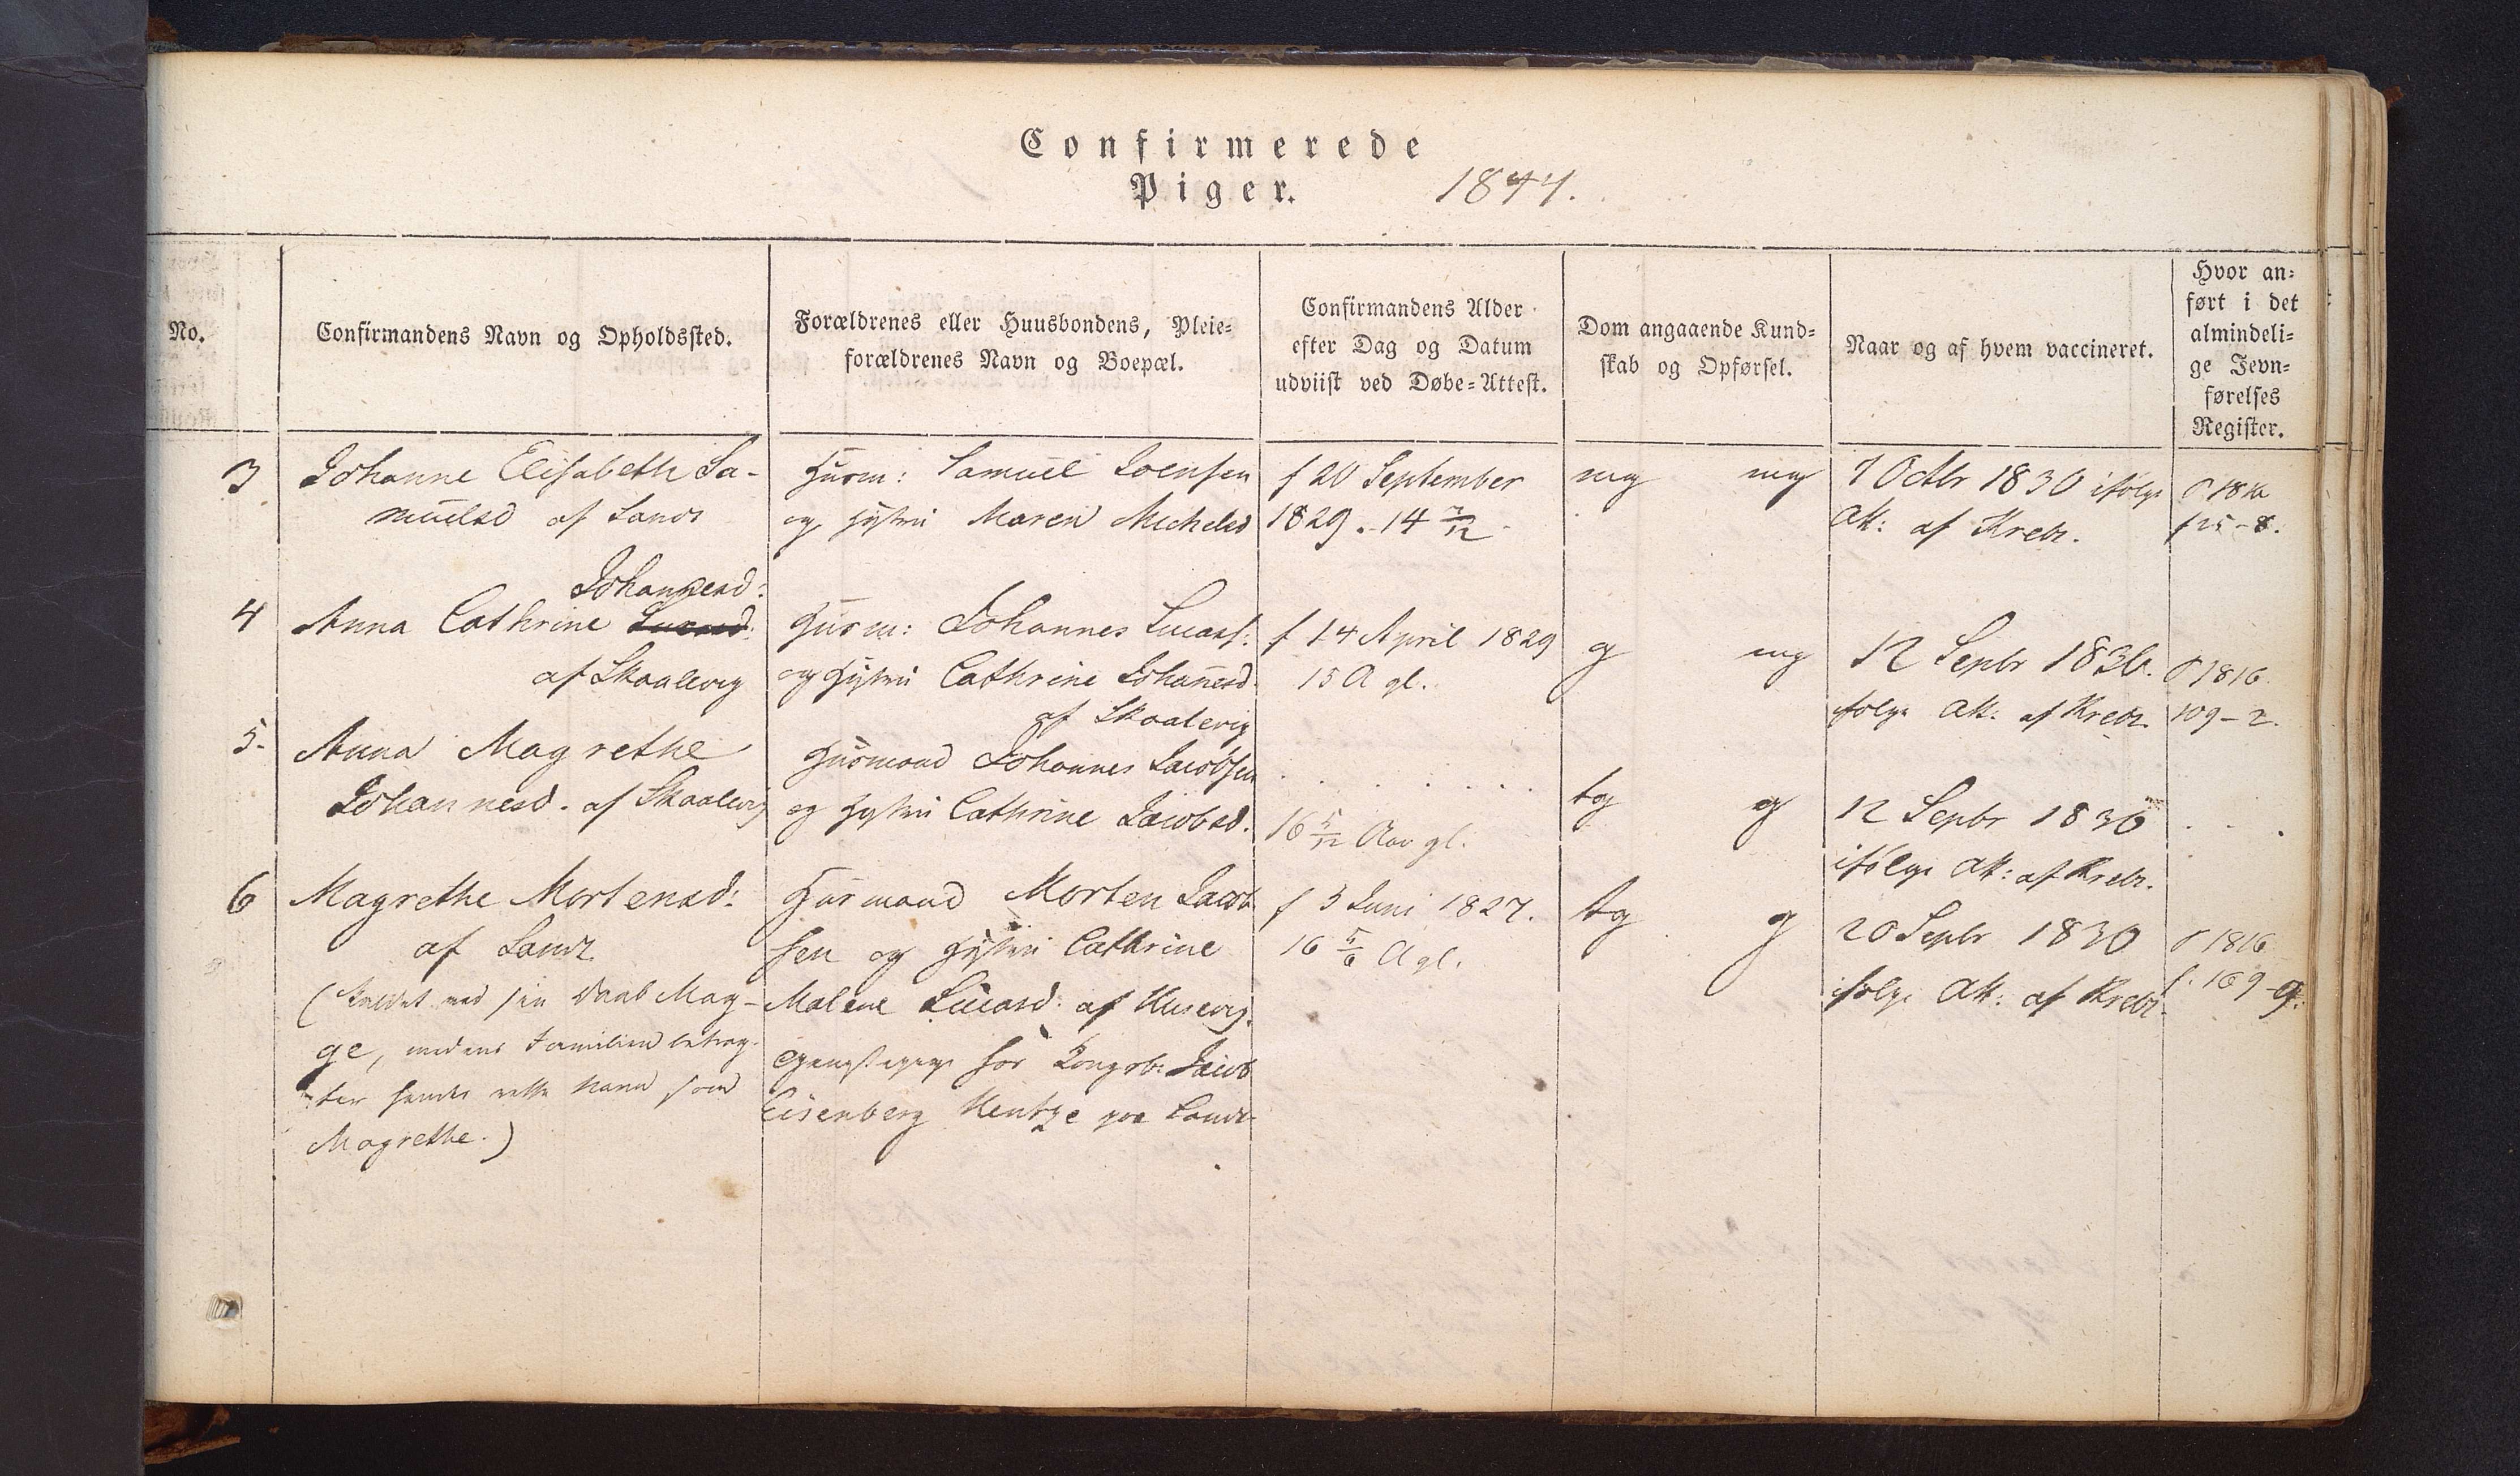 Confirmerede
Piger. 1844.
No.
Confirmandens Navn og Opholdssted.
Forældrenes eller Huusbondens, Pleie-
forældrenes Navn og Boepæl.
Confirmandens Alder
efter Dag og Datum
udviist ved Døbe-Attest.
Dom angaaende Kund-
skab og Opførsel.
Naar og af hvem vaccineret.
Hvor an-
ført i det
almindeli-
ge Jevn-
førelses
Register.
3 Johanne Elisabeth Sa-
muelsd af Sands
Husm: Samuel Joensen
og Hustru Maren Michelsd
f 20 September
1829. 14 7/12
mg mg
7 Octbr 1830 ifølge
Att: af Krebs.
f 25-8.
4 Anna Cathrine Johannesd:
af Skaalevig
Husm: Johannes Lucass:
og Hustru Cathrine Johanesd.
af Skaalevig
f 14 April 1829
15 A gl.
g mg
12 Septbr 1830.
følge Att: af Krebs.
O 1816.
109-2.
5. Anna Magrethe
Johannesd. af Skaalevig
Husmand Johannes Jacobsen
og Hustru Cathrine Jacobsd.
16 5/12 Aar gl.
tg g
12 Septbr 1830
ifølge Att: af Krebs.
6 Magrethe Mortensd:
af Sands
(kaldet ved sin Daab Mag-
ge, medens Familien betrag-
ter hendes rette Navn som
Magrethe.)
Husmand Morten Jacob
sen og Hustru Cathrine
Malene Lucasd: af Husevig.
hos Kongsb: Jacob
Eisenberg Hentze paa Sands
f 3 Juni 1827.
16 5/6 A gl.
tg g
20 Septbr 1830
ifølge Att: af Krebs.
O 1816
f. 169-9.